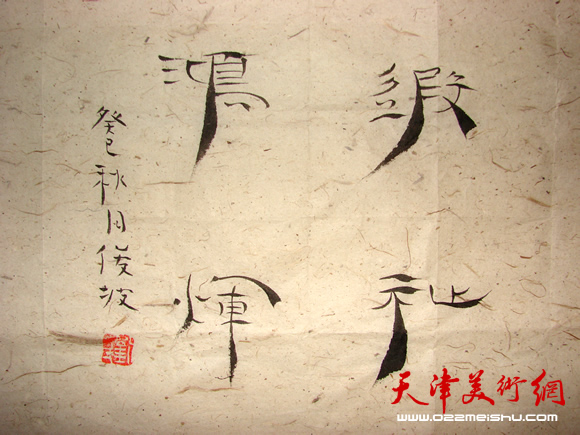 遐祉
鴻煇
癸巳秋月俊坡
天津美術網
www.022meishu.com